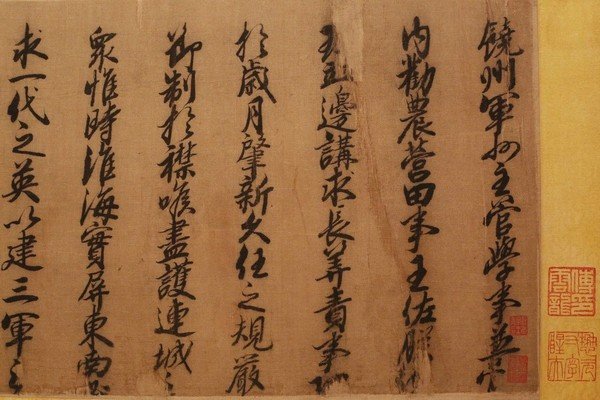 饒州軍州主管學事兼管
内勸農營田事王佐
邊講求長筭責事
於歲月肇新久任之規嚴
節制於襟喉盡護連城之
眾惟時淮海實屏東南
求一代之英以建三軍之